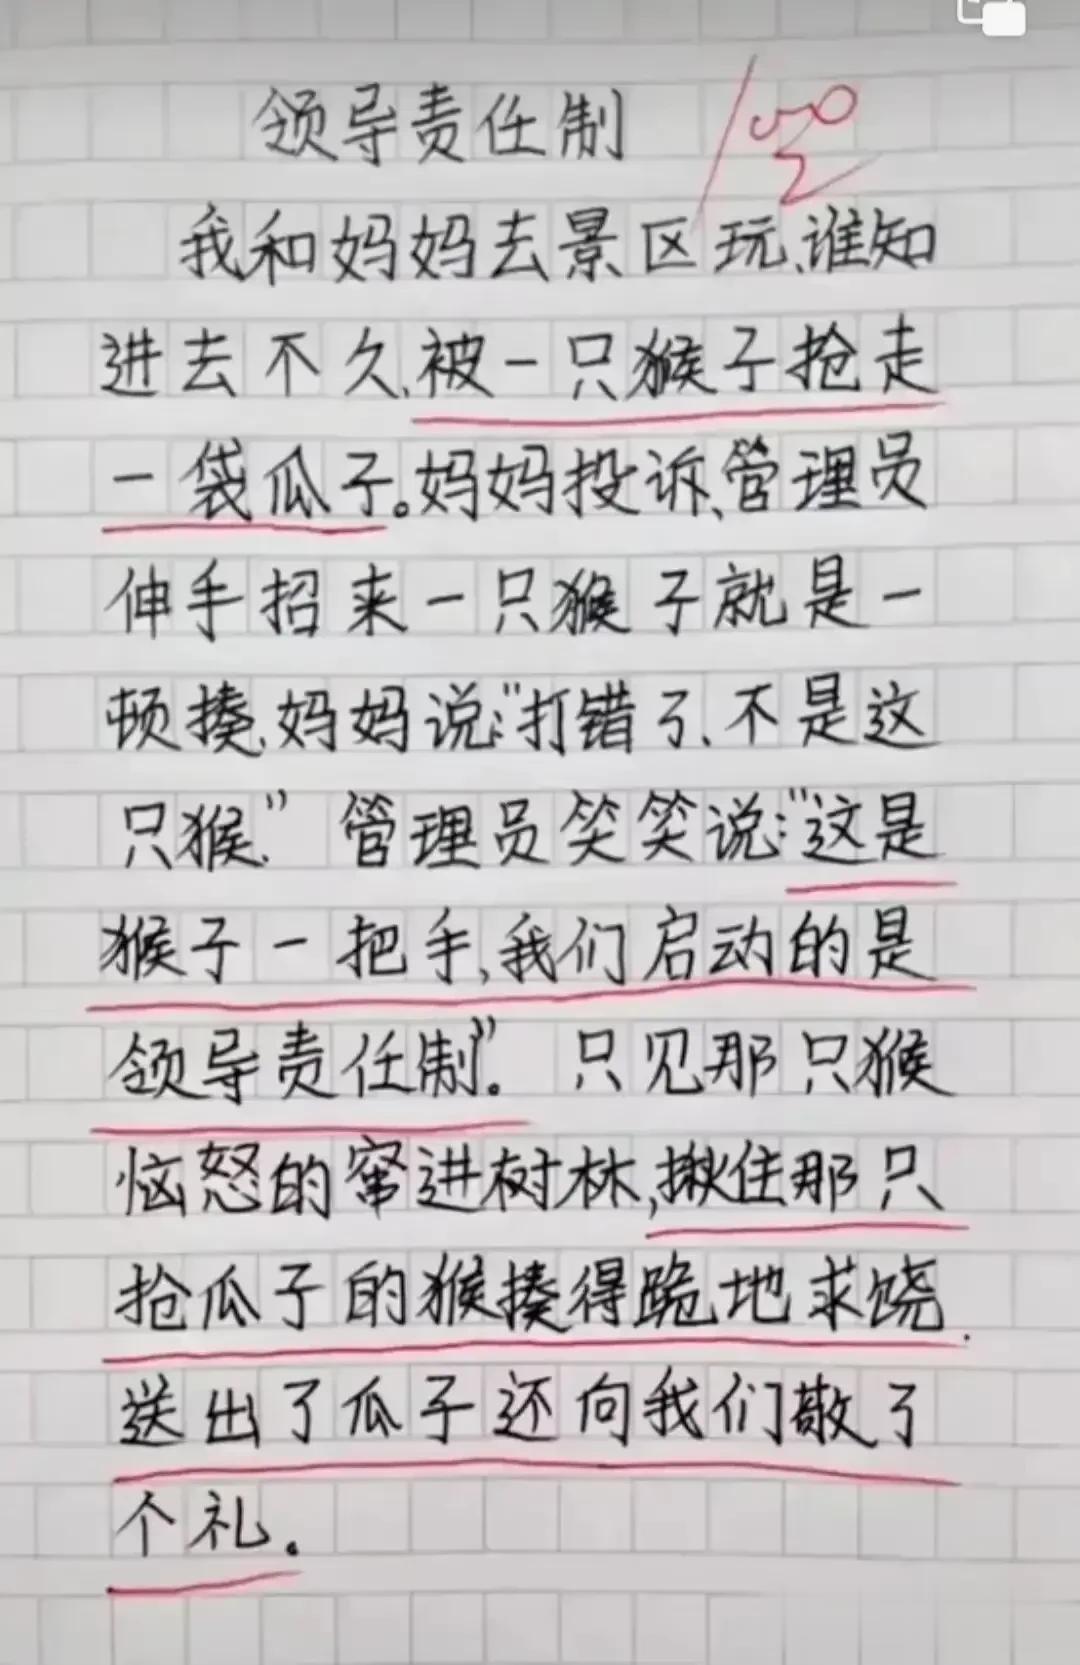 领导责任制 100
我和妈妈去景区玩、谁知
进去不久、被一只猴子抢走
一袋瓜子。妈妈投诉、管理员
伸手招来一只猴子就是一
顿揍、妈妈说:"打错了、不是这
只猴、" 管理员笑笑说:"这是
猴子一把手,我们启动的是
领导责任制"。只见那只猴
恼怒的窜进树林,揪住那只
抢瓜子的猴揍得跪地求饶.
送出了瓜子还向我们敬了
个礼。